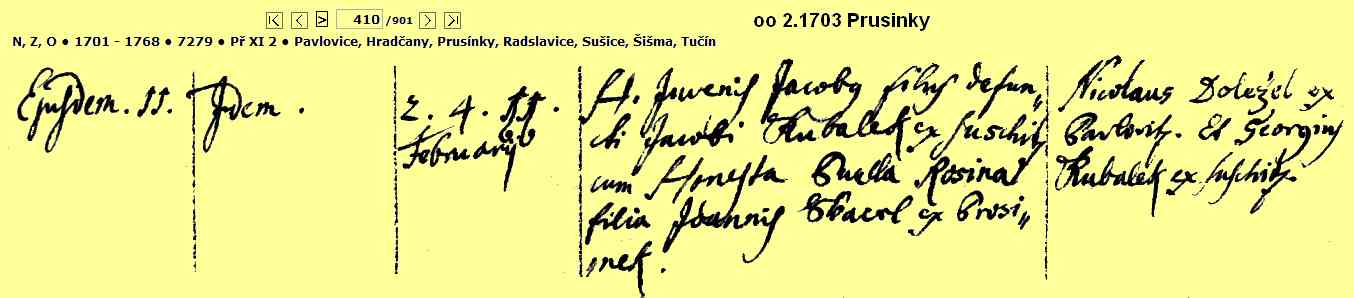 410 /901
oo 2.1703 Prusinky
N, Z, O • 1701 - 1768 • 7279 • Př XI 2 • Pavlovice, Hradčany, Prusínky, Radslavice, Sušice, Šišma, Tučín
Ejusdem. 11.
Idem.
2. 4. 11.
February
H. Juvenis Jacoby filius defun„
cti Jacobi Kubalek ex Suschitz
cum Honesta Puella Rosina
filia Joannis ex Prosi„
nek.
Nicolaus Doležel ex
Pavlovitz. Et Georgius
Kubalek ex Suschitz.